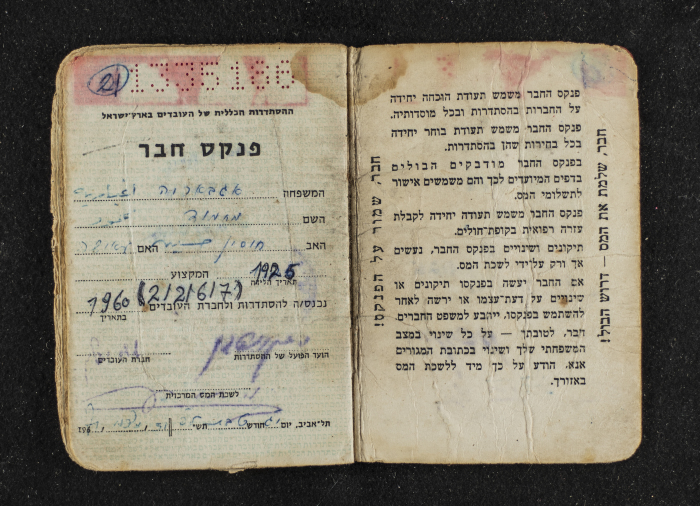 (2) 1335186
ההסתדרות הכללית של העובדים בארץ־ישראל
פנקס חבר
המשפחה
השם מחמוד
האב חוסין האם
תאריך הלידה 1925 המקצוע
נכנס/ה להסתדרות ולחברת העובדים (2/2/67) 1960
בתאריך
הועד הפועל של ההסתדרות חברת העובדים
לשכת המס המרכזית
תל־אביב, יום חודש תש״ 196
פנקס החבר משמש תעודת הוכחה יחידה
על החברות בהסתדרות ובכל מוסדותיה.
פנקס החבר משמש תעודת בוחר יחידה
בכל בחירות שהן בהסתדרות.
בפנקס החבר מודבקים הבולים
בדפים המיועדים לכך והם משמשים אישור
לתשלומי המס.
פנקס החבר משמש תעודה יחידה לקבלת
עזרה רפואית בקופת־חולים.
תיקונים ושינויים בפנקס החבר, נעשים
אך ורק על־ידי לשכת המס.
אם החבר יעשה בפנקסו תיקונים או
שינויים על דעת־עצמו או ירשה לאחר
להשתמש בפנקסו, ייתבע למשפט החברים.
חבר, לטובתך — על כל שינוי במצב
המשפחתי שלך ושינוי בכתובת המגורים
אנא, הודע על כך מיד ללשכת המס
באזורך.
חבר, שמור על הפנקס!
חבר, שלמת את המס — דרוש הבול!